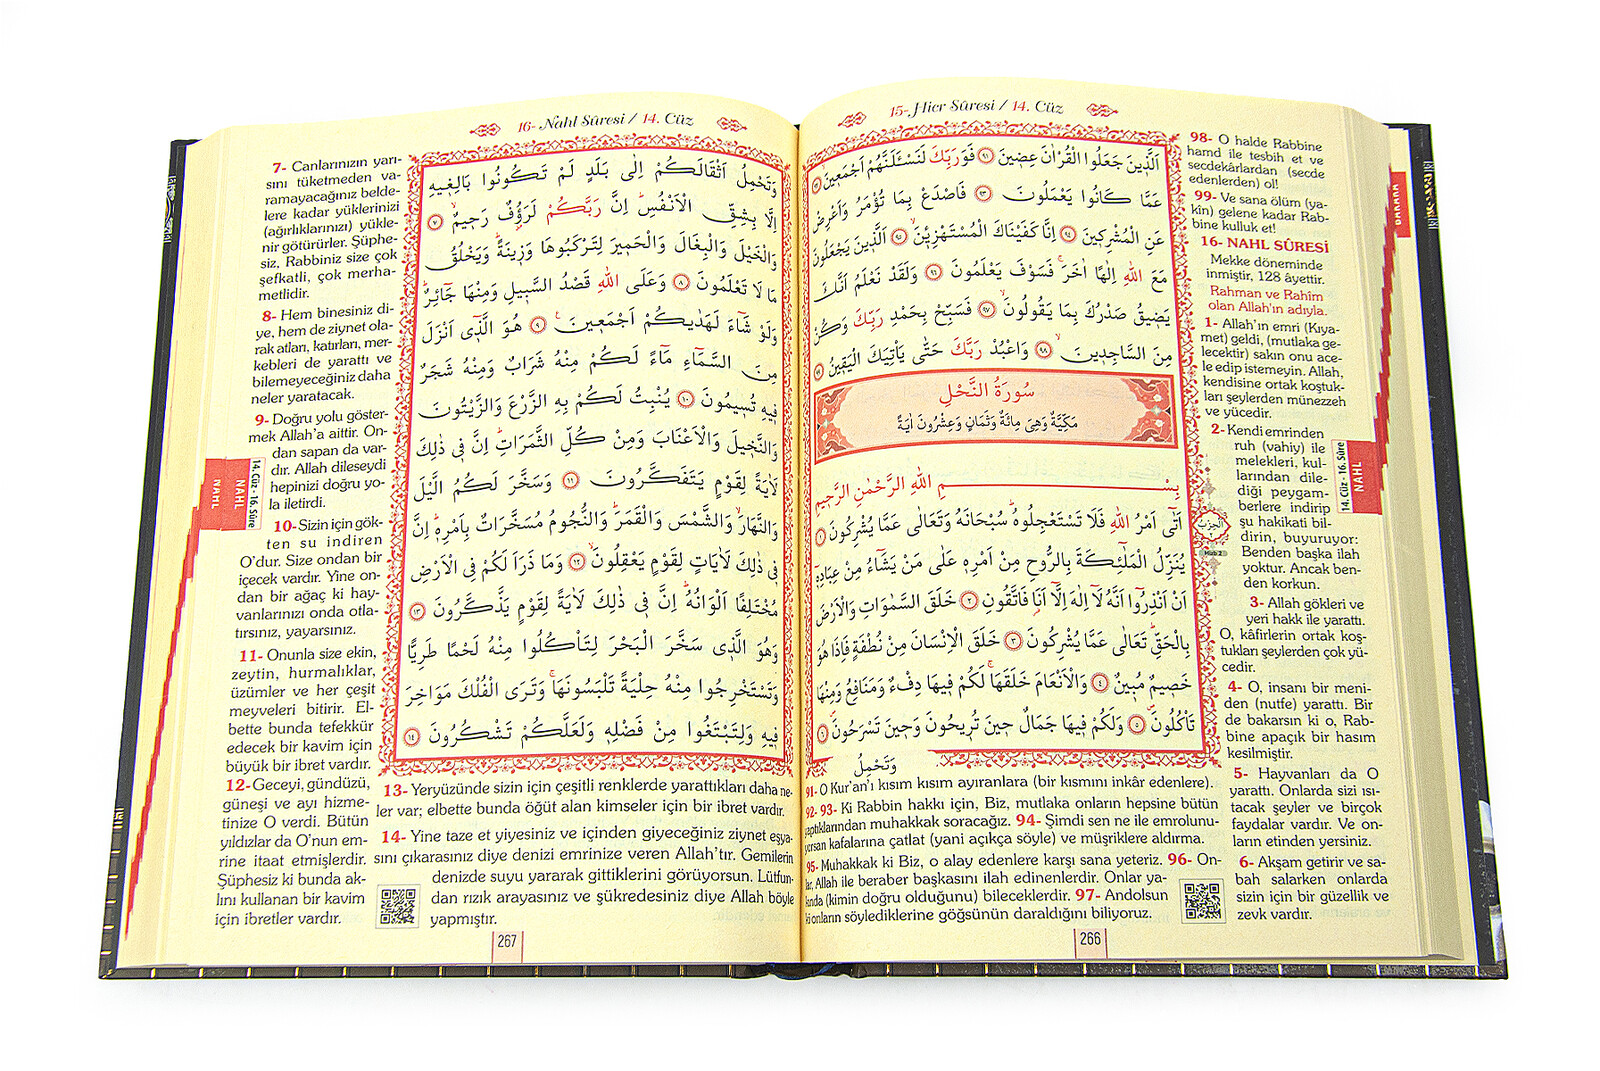 15- Hicr Sûresi / 14. Cüz
اَلَّذ۪ينَ جَعَلُوا الْقُرْاٰنَ عِض۪ينَ ٩١ فَوَرَبِّكَ لَنَسْـَٔلَنَّهُمْ اَجْمَع۪ينَ ٩٢
عَمَّا كَانُوا يَعْمَلُونَ ٩٣ فَاصْدَعْ بِمَا تُؤْمَرُ وَاَعْرِضْ
عَنِ الْمُشْرِك۪ينَ ٩٤ اِنَّا كَفَيْنَاكَ الْمُسْتَهْزِء۪ينَۙ ٩٥ اَلَّذ۪ينَ يَجْعَلُونَ
مَعَ اللّٰهِ اِلٰهًا اٰخَرَۚ فَسَوْفَ يَعْلَمُونَ ٩٦ وَلَقَدْ نَعْلَمُ اَنَّكَ
يَض۪يقُ صَدْرُكَ بِمَا يَقُولُونَۙ ٩٧ فَسَبِّحْ بِحَمْدِ رَبِّكَ وَكُنْ
مِنَ السَّاجِد۪ينَۙ ٩٨ وَاعْبُدْ رَبَّكَ حَتّٰى يَأْتِيَكَ الْيَق۪ينُ ٩٩
سُورَةُ النَّحْلِ
مَكِّيَّةٌ وَهِىَ مِائَةٌ وَثَمَانٍ وَعِشْرُونَ اٰيَةً
بِسْمِ اللّٰهِ الرَّحْمٰنِ الرَّح۪يمِ
اَتٰٓى اَمْرُ اللّٰهِ فَلَا تَسْتَعْجِلُوهُۜ سُبْحَانَهُ وَتَعَالٰى عَمَّا يُشْرِكُونَ ١
يُنَزِّلُ الْمَلٰٓئِكَةَ بِالرُّوحِ مِنْ اَمْرِه۪ عَلٰى مَنْ يَشَٓاءُ مِنْ عِبَادِه۪ٓ
اَنْ اَنْذِرُٓوا اَنَّهُ لَٓا اِلٰهَ اِلَّٓا اَنَا۬ فَاتَّقُونِ ٢ خَلَقَ السَّمٰوَاتِ وَالْاَرْضَ
بِالْحَقِّۜ تَعَالٰى عَمَّا يُشْرِكُونَ ٣ خَلَقَ الْاِنْسَانَ مِنْ نُطْفَةٍ فَاِذَا هُوَ
خَص۪يمٌ مُب۪ينٌ ٤ وَالْاَنْعَامَ خَلَقَهَاۚ لَكُمْ ف۪يهَا دِفْءٌ وَمَنَافِعُ وَمِنْهَا
تَأْكُلُونَۖ ٥ وَلَكُمْ ف۪يهَا جَمَالٌ ح۪ينَ تُر۪يحُونَ وَح۪ينَ تَسْرَحُونَۖ ٦
وَتَحْمِلُ
الْحِزْبُ
Hizb 2
98- O halde Rabbine
hamd ile tesbih et ve
secdekârlardan (secde
edenlerden) ol!
99- Ve sana ölüm (ya-
kin) gelene kadar Rab-
bine kulluk et!
16- NAHL SÛRESİ
Mekke döneminde
inmiştir, 128 âyettir.
Rahman ve Rahîm
olan Allah'ın adıyla.
1- Allah'ın emri (Kıya-
met) geldi, (mutlaka ge-
lecektir) sakın onu ace-
le edip istemeyin. Allah,
kendisine ortak koştuk-
ları şeylerden münezzeh
ve yücedir.
2- Kendi emrinden
ruh (vahiy) ile
melekleri, kul-
larından dile-
diği peygam-
berlere indirip
şu hakikati bil-
dirin, buyuruyor:
Benden başka ilah
yoktur. Ancak ben-
den korkun.
3- Allah gökleri ve
yeri hakk ile yarattı.
O, kâfirlerin ortak koş-
tukları şeylerden çok yü-
cedir.
4- O, insanı bir meni-
den (nutfe) yarattı. Bir
de bakarsın ki o, Rab-
bine apaçık bir hasım
kesilmiştir.
5- Hayvanları da O
yarattı. Onlarda sizi ısı-
tacak şeyler ve birçok
faydalar vardır. Ve on-
ların etinden yersiniz.
6- Akşam getirir ve sa-
bah salarken onlarda
sizin için bir güzellik ve
zevk vardır.
91- O Kur'an'ı kısım kısım ayıranlara (bir kısmını inkâr edenlere).
92- 93- Ki Rabbin hakkı için, Biz, mutlaka onların hepsine bütün
yaptıklarından muhakkak soracağız. 94- Şimdi sen ne ile emrolunu-
yorsan kafalarına çatlat (yani açıkça söyle) ve müşriklere aldırma.
95- Muhakkak ki Biz, o alay edenlere karşı sana yeteriz. 96- On-
lar, Allah ile beraber başkasını ilah edinenlerdir. Onlar ya-
kında (kimin doğru olduğunu) bileceklerdir. 97- Andolsun
ki onların söylediklerine göğsünün daraldığını biliyoruz.
266
BAKARA
14. Cüz - 16. Sûre
NAHL
16- Nahl Sûresi / 14. Cüz
وَتَحْمِلُ اَثْقَالَكُمْ اِلٰى بَلَدٍ لَمْ تَكُونُوا بَالِغ۪يهِ
اِلَّا بِشِقِّ الْاَنْفُسِۜ اِنَّ رَبَّكُمْ لَرَؤُ۫فٌ رَح۪يمٌۙ ٧
وَالْخَيْلَ وَالْبِغَالَ وَالْحَم۪يرَ لِتَرْكَبُوهَا وَز۪ينَةًۜ وَيَخْلُقُ
مَا لَا تَعْلَمُونَ ٨ وَعَلَى اللّٰهِ قَصْدُ السَّب۪يلِ وَمِنْهَا جَٓائِرٌۜ
وَلَوْ شَٓاءَ لَهَدٰيكُمْ اَجْمَع۪ينَ۟ ٩ هُوَ الَّذ۪ٓي اَنْزَلَ
مِنَ السَّمَٓاءِ مَٓاءً لَكُمْ مِنْهُ شَرَابٌ وَمِنْهُ شَجَرٌ
ف۪يهِ تُس۪يمُونَ ١٠ يُنْبِتُ لَكُمْ بِهِ الزَّرْعَ وَالزَّيْتُونَ
وَالنَّخ۪يلَ وَالْاَعْنَابَ وَمِنْ كُلِّ الثَّمَرَاتِۜ اِنَّ ف۪ي ذٰلِكَ
لَاٰيَةً لِقَوْمٍ يَتَفَكَّرُونَ ١١ وَسَخَّرَ لَكُمُ الَّيْلَ
وَالنَّهَارَۙ وَالشَّمْسَ وَالْقَمَرَۜ وَالنُّجُومُ مُسَخَّرَاتٌ بِاَمْرِه۪ۜ اِنَّ
ف۪ي ذٰلِكَ لَاٰيَاتٍ لِقَوْمٍ يَعْقِلُونَۙ ١٢ وَمَا ذَرَاَ لَكُمْ فِي الْاَرْضِ
مُخْتَلِفًا اَلْوَانُهُۜ اِنَّ ف۪ي ذٰلِكَ لَاٰيَةً لِقَوْمٍ يَذَّكَّرُونَ ١٣
وَهُوَ الَّذ۪ي سَخَّرَ الْبَحْرَ لِتَأْكُلُوا مِنْهُ لَحْمًا طَرِيًّا
وَتَسْتَخْرِجُوا مِنْهُ حِلْيَةً تَلْبَسُونَهَاۚ وَتَرَى الْفُلْكَ مَوَاخِرَ
ف۪يهِ وَلِتَبْتَغُوا مِنْ فَضْلِه۪ وَلَعَلَّكُمْ تَشْكُرُونَ ١٤
7- Canlarınızın yarı-
sını tüketmeden va-
ramayacağınız belde-
lere kadar yüklerinizi
(ağırlıklarınızı) yükle-
nir götürürler. Şüphe-
siz, Rabbiniz size çok
şefkatli, çok merha-
metlidir.
8- Hem binesiniz di-
ye, hem de ziynet ola-
rak atları, katırları, mer-
kebleri de yarattı ve
bilemeyeceğiniz daha
neler yaratacak.
9- Doğru yolu göster-
mek Allah'a aittir. On-
dan sapan da var-
dır. Allah dileseydi
hepinizi doğru yo-
la iletirdi.
10- Sizin için gök-
ten su indiren
O'dur. Size ondan bir
içecek vardır. Yine on-
dan bir ağaç ki hay-
vanlarınızı onda otla-
tırsınız, yayarsınız.
11- Onunla size ekin,
zeytin, hurmalıklar,
üzümler ve her çeşit
meyveleri bitirir. El-
bette bunda tefekkür
edecek bir kavim için
büyük bir ibret vardır.
12- Geceyi, gündüzü,
güneşi ve ayı hizme-
tinize O verdi. Bütün
yıldızlar da O'nun em-
rine itaat etmişlerdir.
Şüphesiz ki bunda ak-
lını kullanan bir kavim
için ibretler vardır.
13- Yeryüzünde sizin için çeşitli renklerde yarattıkları daha ne-
ler var; elbette bunda öğüt alan kimseler için bir ibret vardır.
14- Yine taze et yiyesiniz ve içinden giyeceğiniz ziynet eşya-
sını çıkarasınız diye denizi emrinize veren Allah'tır. Gemilerin
denizde suyu yararak gittiklerini görüyorsun. Lütfun-
dan rızık arayasınız ve şükredesiniz diye Allah böyle
yapmıştır.
267
14. Cüz - 16. Sûre
NAHL
NAHL